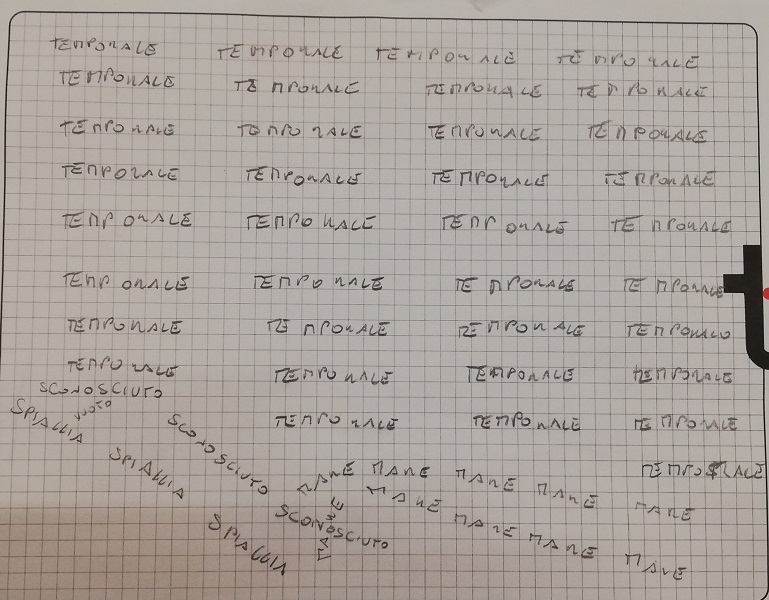 TEMPORALE TEMPORALE TEMPORALE TEMPORALE
TEMPORALE TEMPORALE TEMPORALE TEMPORALE
TEMPORALE TEMPORALE TEMPORALE TEMPORALE
TEMPORALE TEMPORALE TEMPORALE TEMPORALE
TEMPORALE TEMPORALE TEMPORALE TEMPORALE
TEMPORALE TEMPORALE TEMPORALE TEMPORALE
TEMPORALE TEMPORALE TEMPORALE TEMPORALO
TEMPORALE TEMPORALE TEMPORALE TEMPORALE
SCONOSCIUTO
VUOTO
SPIAGGIA SCONOSCIUTO TEMPORALE TEMPORALE TEMPORALE
SPIAGGIA MARE MARE MARE MARE MARE TEMPORALE
SCONOSCIUTO MARE MARE MARE MARE MARE
SPIAGGIA
t